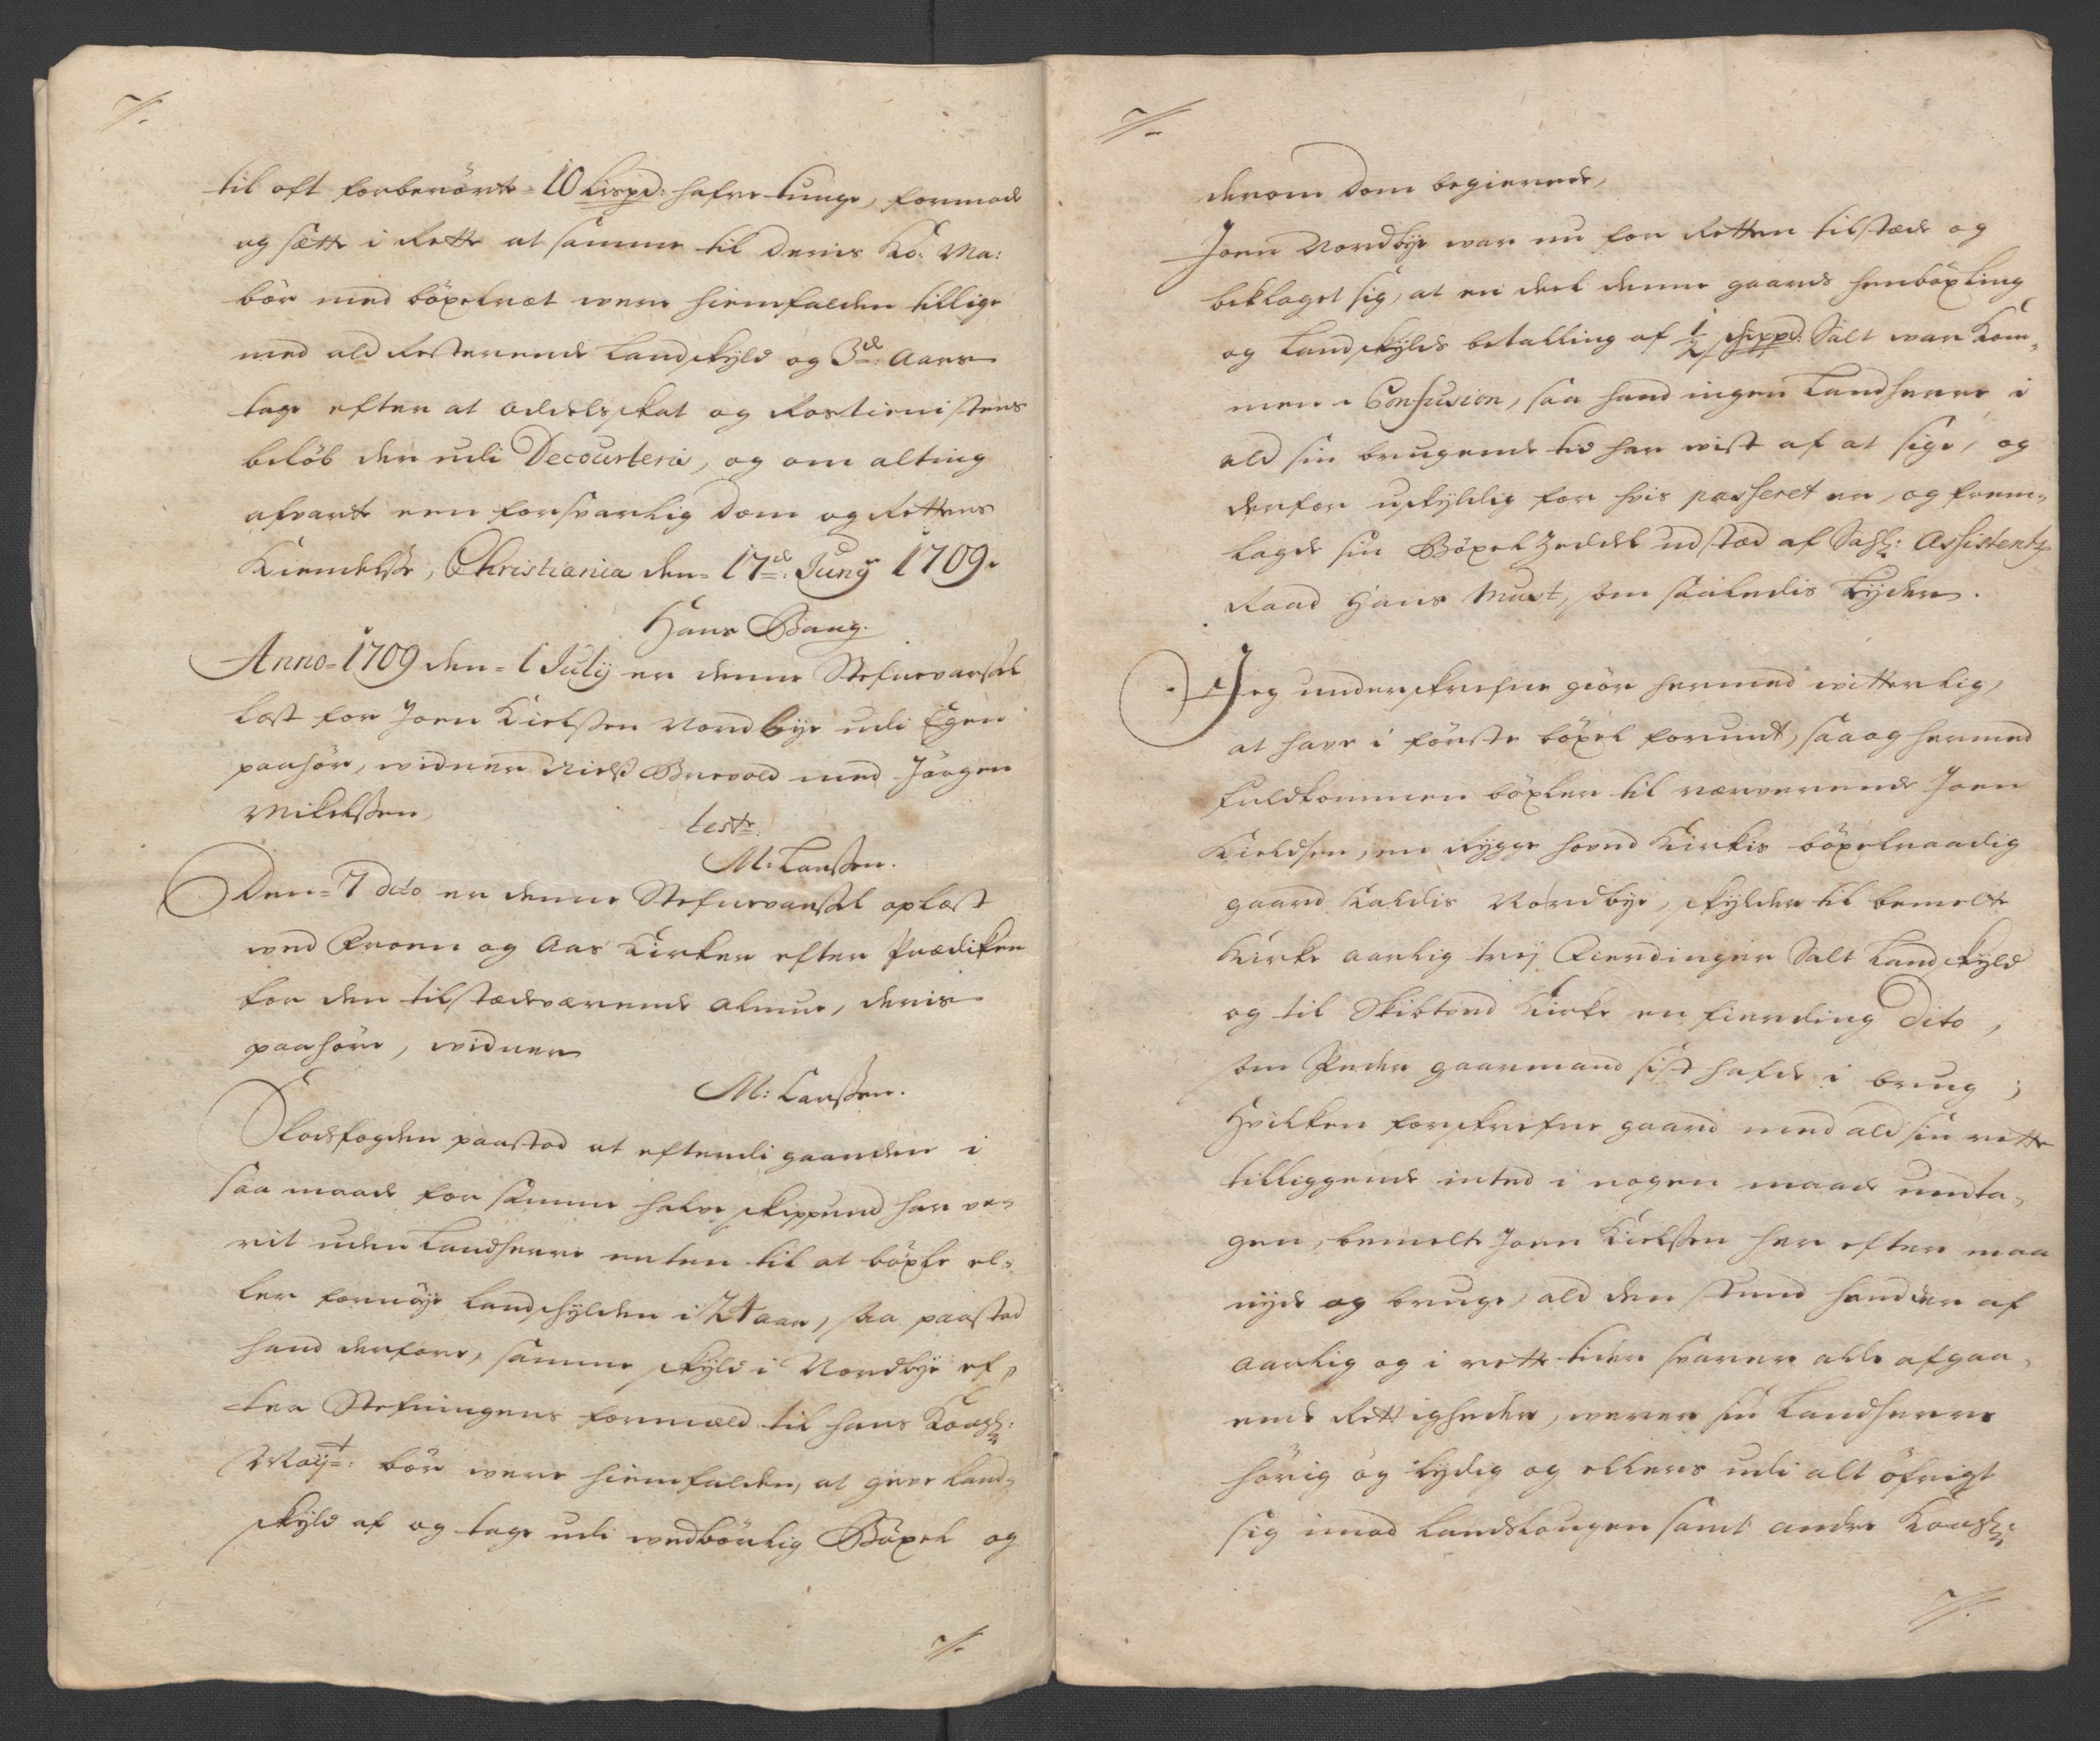 7/.
til oft forberörte 10 Lispd: hafre tunge, formode
og sætte i Rette at samme til Deris Ko: Ma:
bör med böxelræt were hiemfalden tillige
med ald Resterende Landskyld og 3de: Aars
tage efter at Oddelsskat og Rostienistens
beløb der udi Decourteris, og om alting
afvarte een forsvarlig Dom og Rettens
Kiendelse, Christiania den 17de: Juny 1709.
Hans Bang.
Anno 1709 den 1 July er denne Stefnevarsel
læst for Joen Kielssen Nordbye udi Egen
paahör, widner Niels Brevold med Jörgen
Mikelssen,
test:
M: Larssen.
Den 7 dito er denne Stefnevarsel oplæst
wed Froen og Aas Kirker efter Prædiken
for den tilstædeværende Almue, deris
paahöre, widner
M: Larssen.
Fodefogden paastod at efterdi gaarden i
saa maade for samme halve skippund har ve-
rit uden Landherre enten til at böxle el-
ler fornöye Landskylden i 24 aar, saa paastod
hand derfore, samme skyld i Nordbye ef-
ter Stefningens formæld til hans Kongl:
Mayt: bör were hiemfalden, at give Land-
skyld af og tage udi wedbörlig Böxel og
7/.
7/.
derom Dom begierende,
Joen Nordbye war nu for Retten tilstæde og
beklaget sig, at en deel denne gaards henböxling
og Landskylds betalling af 1/2 skippd: Salt war Kom-
men i Confusion, saa hand ingen Landherre i
ald sin brugende tid har wist af at sige, og
derfor uskyldig for hvis passeret er, og frem-
lagde sin Böxel Zeddel udstæd af Sahl: Assistentz
Raad Hans Must, som saaledis Lyder.
Jeg underskrefne giör hermed witterlig,
at have i förste böxel forundt, saa og hermed
fuldkommen böxler til nærverende Joen
Kieldsen, en Rygge hoved Kirkis böxelraadig
gaard Kaldis Nordbye, skylder til bemelte
Kirke aarlig trej Fierdinger Salt Landskyld
og til Skibtved Kirke en fierding Dito,
som Peder gaarmand sist hafde i brug;
Hvilken forskrefne gaard med ald sin rette
tilliggende inted i nogen maade undta-
gen, bemelte Joen Kielssen her efter maa
nyde og bruge, ald den stund hand der af
aarlig og i rette tider svarer alle afgaa-
ende Rettigheder, werer sin Landherre
hörig og lydig og ellers udi alt öfrigt
sig imod Landslougen samt andre Kongl:
7/.